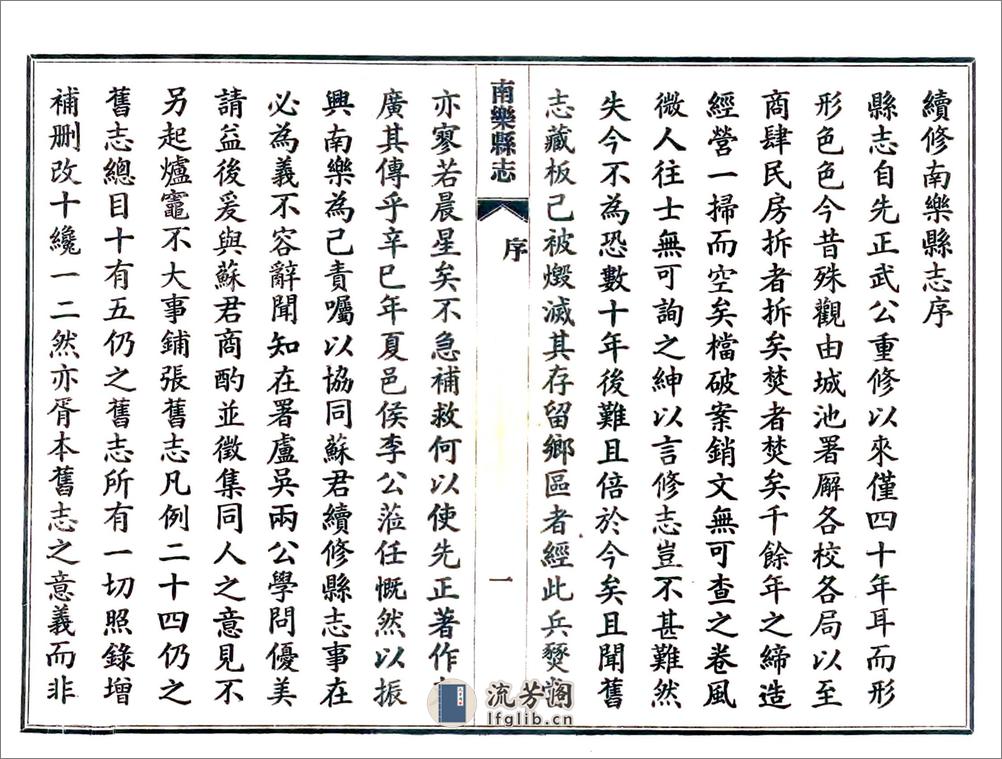 續修南樂縣志序
縣志自先正武公重修以來僅四十年耳而形
形色色今昔殊觀由城池署廨各校各局以至
商肆民房拆者拆矣焚者焚矣千餘年之締造
經營一掃而空矣檔破案銷文無可查之卷風
微人往士無可詢之紳以言修志豈不甚難然
失今不為恐數十年後難且倍於今矣且聞舊
志藏板已被燬滅其存留鄉區者經此兵燹
南樂縣志
序
一
亦寥若晨星矣不急補救何以使先正著作
廣其傳乎辛巳年夏邑侯李公蒞任慨然以振
興南樂為己責囑以協同蘇君續修縣志事在
必為義不容辭聞知在署盧吳兩公學問優美
請益後爰與蘇君商酌並徵集同人之意見不
另起爐竈不大事鋪張舊志凡例二十四仍之
舊志總目十有五仍之舊志所有一切照錄增
補刪改十纔一二然亦胥本舊志之意義而非
流芳閣
lfglib.cn